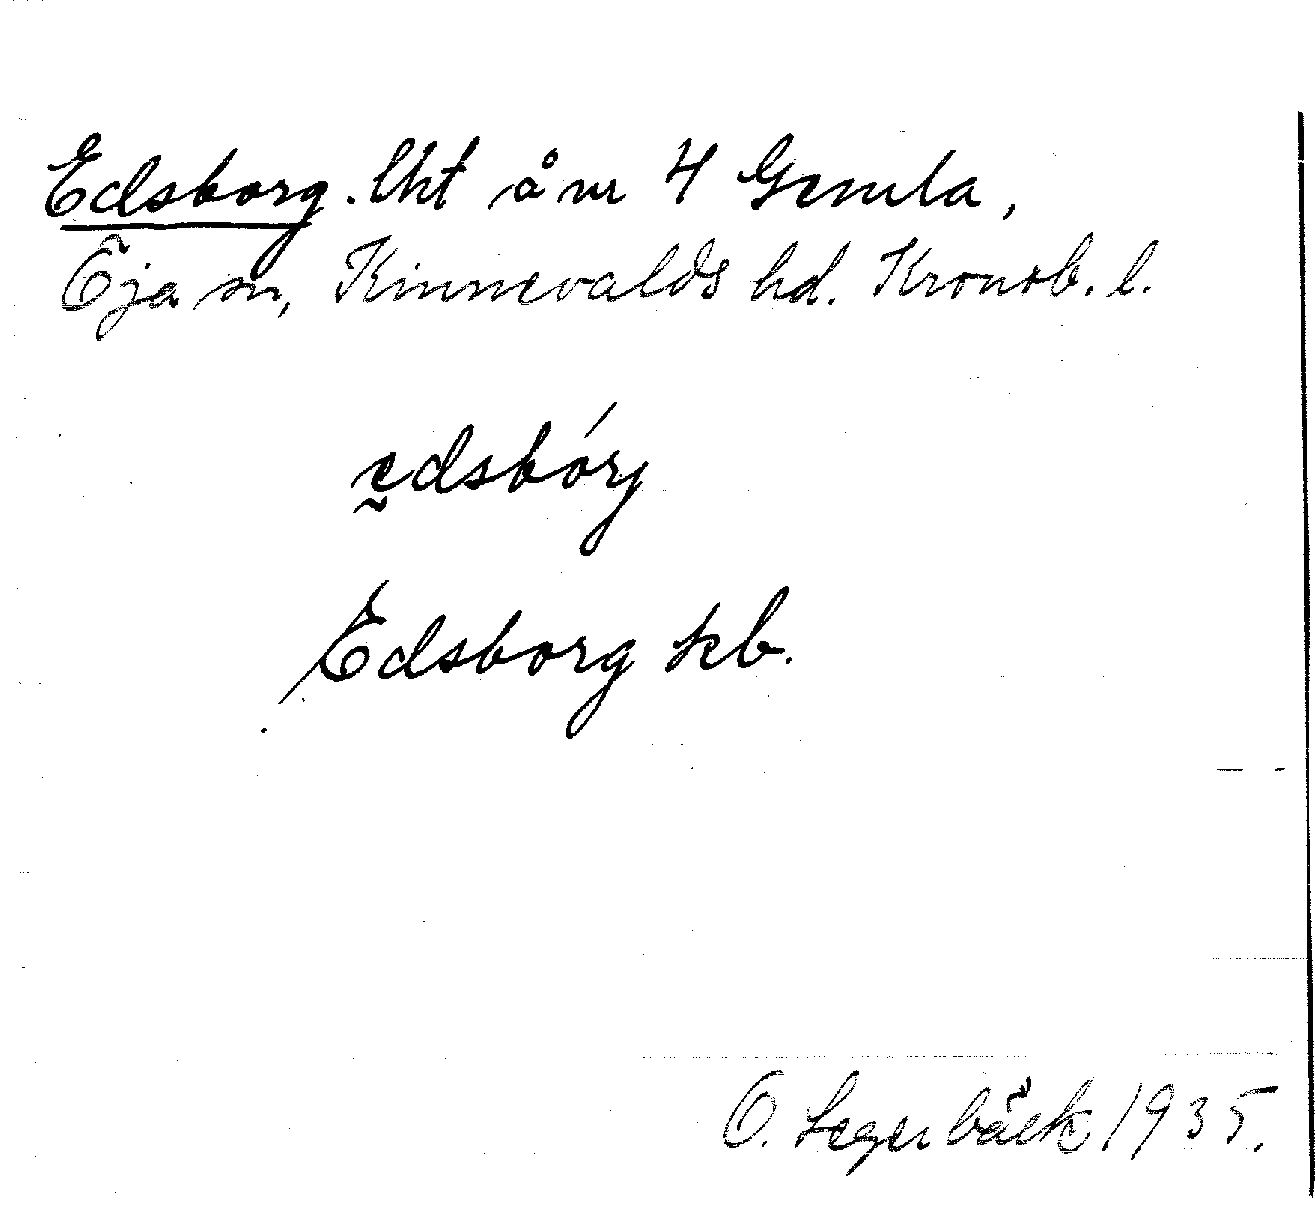 Edsborg. lht å nr 4 Gemla,
Öja sn, Kinnevalds hd. Kronob. l.
e̬dsbórj
Edsborg kb.
O. Segerbäck 1935.